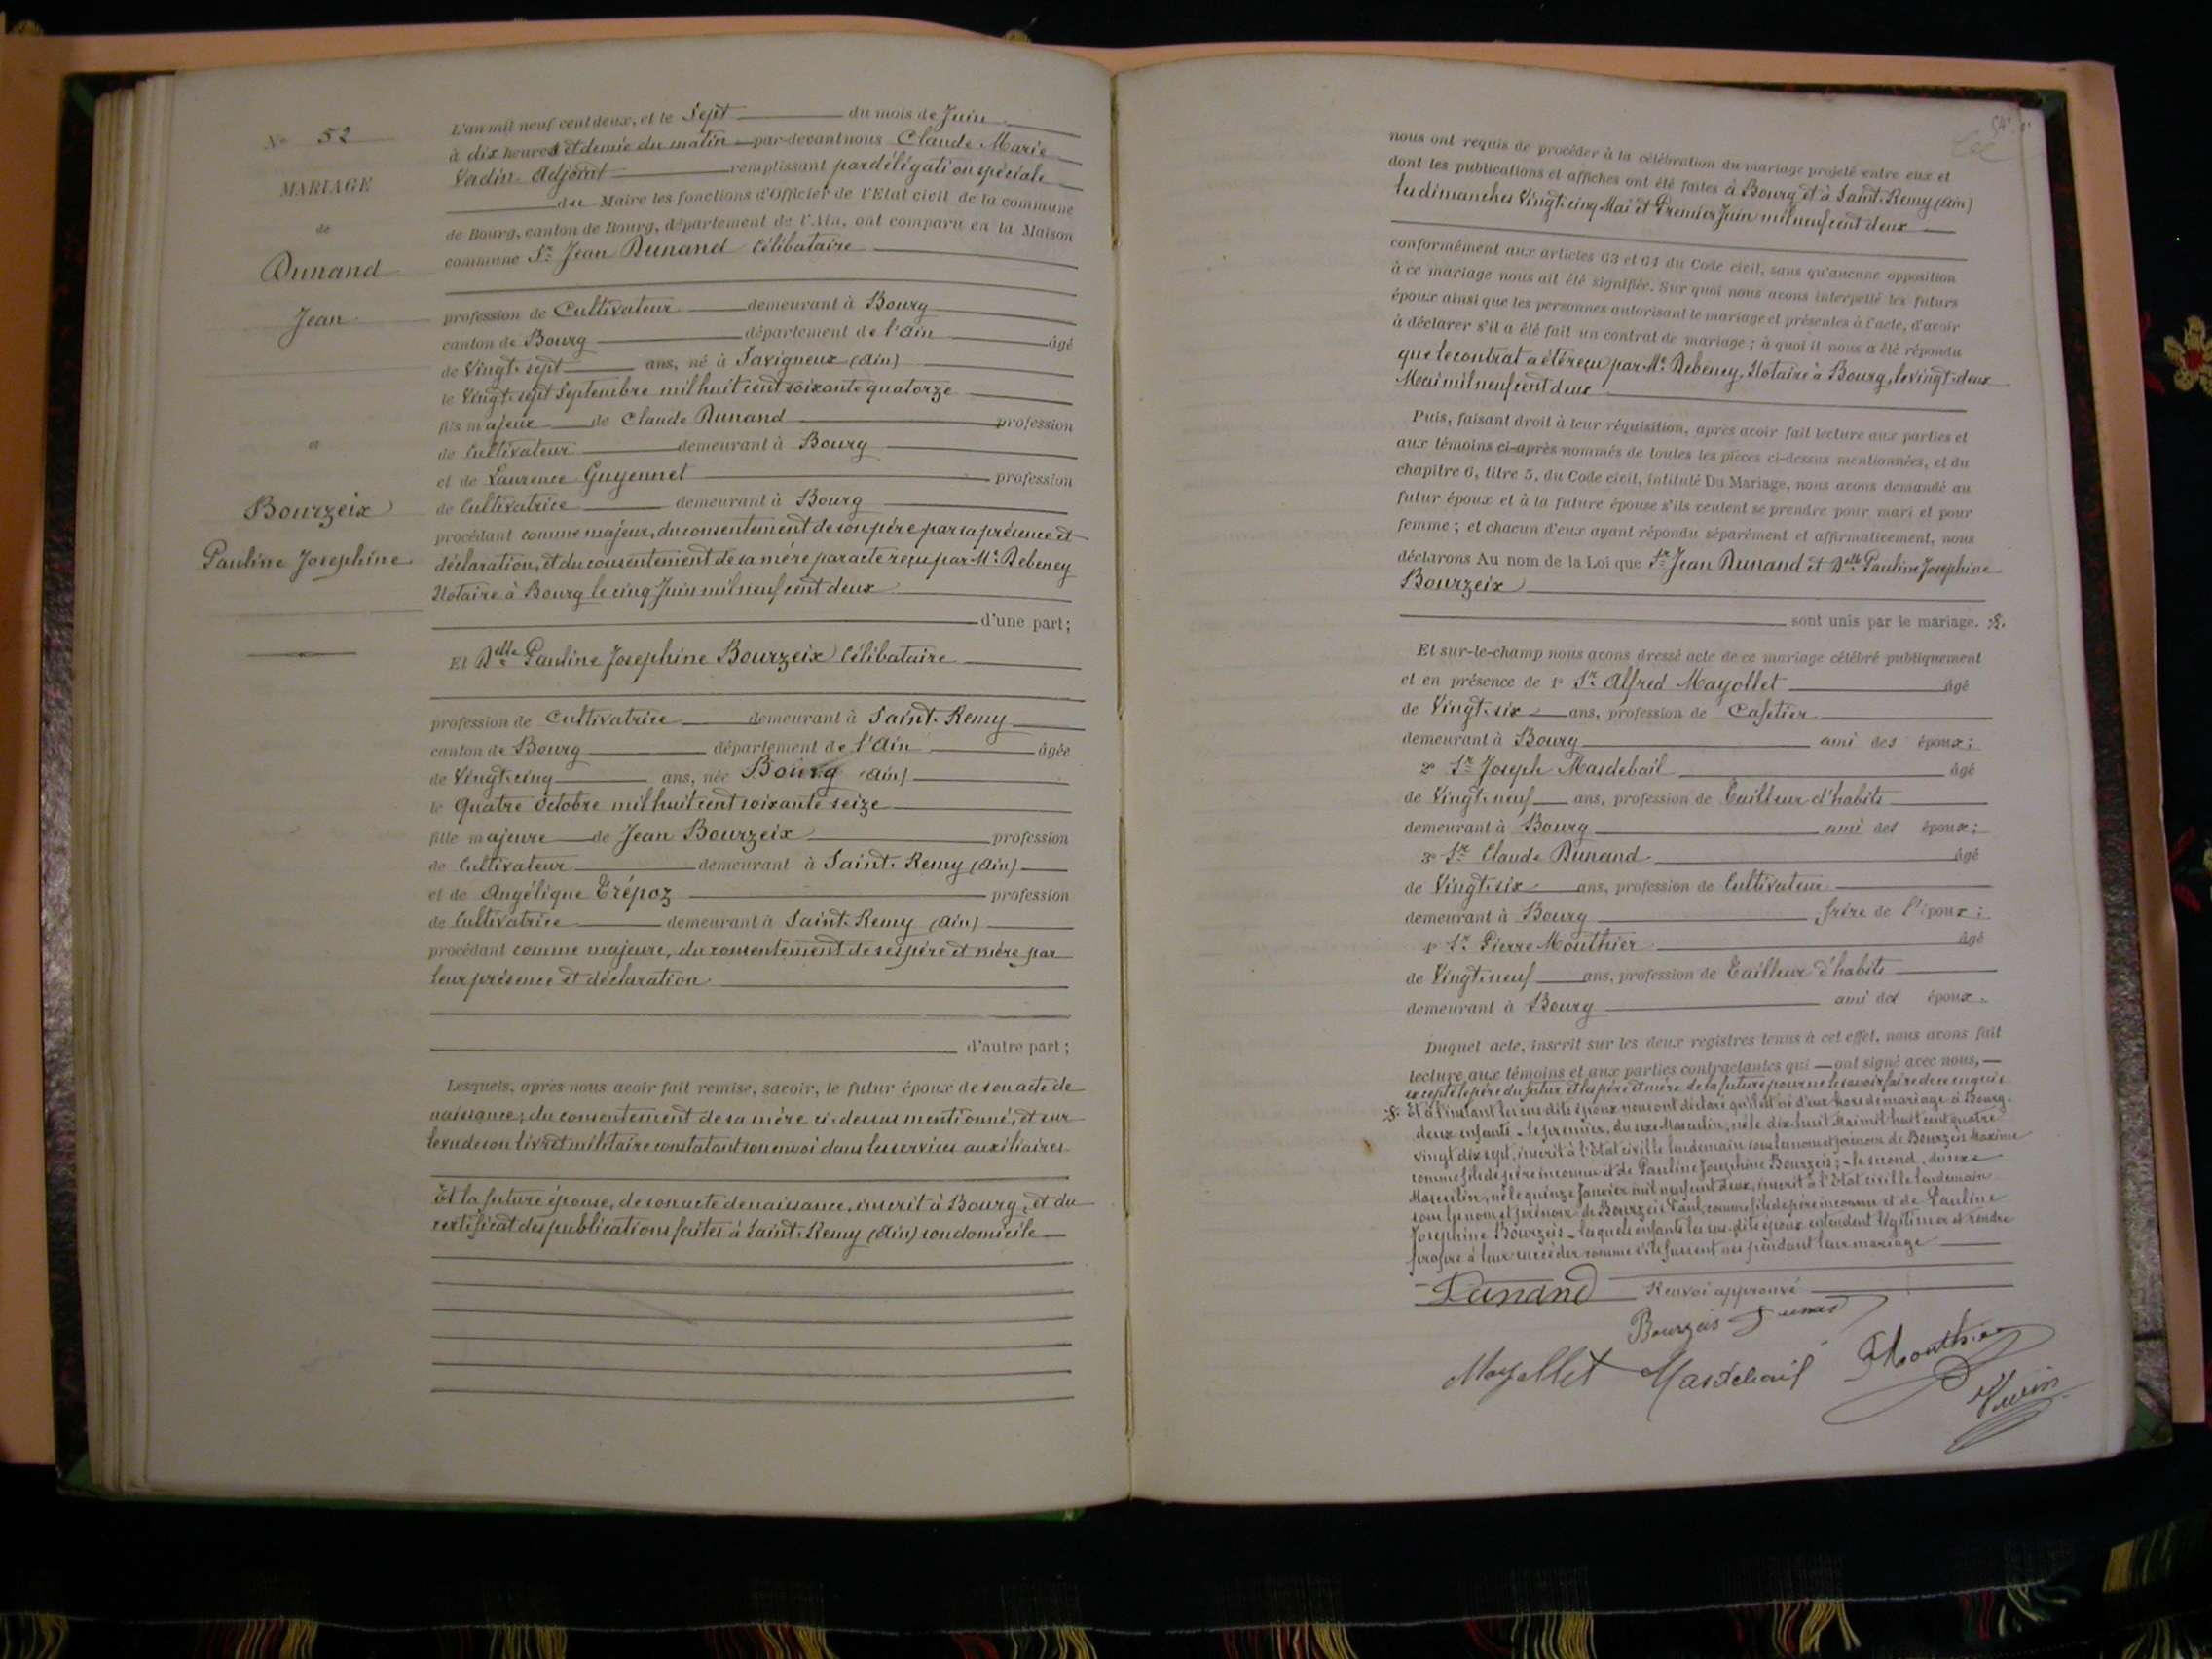 N° 52
MARIAGE
de
Dunand
Jean
et
Bourzeix
Pauline Josephine
L'an mil neuf cent deux, et le Sept du mois de Juin
à dix heures et demie du matin par-devant nous Claude Marie
Verdin Adjoint remplissant par délégation spéciale
du Maire les fonctions d'Officier de l'Etat civil de la commune
de Bourg, canton de Bourg, département de l'Ain, ont comparu en la Maison
commune Sr Jean Dunand Célibataire
profession de Cultivateur demeurant à Bourg
canton de Bourg département de l'Ain âgé
de Vingt-sept ans, né à Savigneux (Ain)
le Vingt-sept Septembre mil huit cent soixante quatorze
fils majeur de Claude Dunand profession
de Cultivateur demeurant à Bourg
et de Laurence Guyennet profession
de Cultivatrice demeurant à Bourg
procédant comme majeur, du consentement de son père par sa présence et
déclaration, et du consentement de sa mère par acte reçu par Me Debeney
Notaire à Bourg le cinq Juin mil neuf cent deux
d'une part;
Et Delle Pauline Josephine Bourzeix Célibataire
profession de Cultivatrice demeurant à Saint-Remy
canton de Bourg département de l'Ain âgée
de Vingt-cinq ans, née Bourg (Ain)
le Quatre Octobre mil huit cent soixante seize
fille majeure de Jean Bourzeix profession
de Cultivateur demeurant à Saint-Remy (Ain)
et de Angélique Trépoz profession
de Cultivatrice demeurant à Saint-Remy (Ain)
procédant comme majeure, du consentement de ses père et mère par
leur présence et déclaration
d'autre part;
Lesquels, après nous avoir fait remise, savoir, le futur époux de son acte de
naissance; du consentement de sa mère ci-dessus mentionné, et sur
le vu de son livret militaire constatant son envoi dans les services auxiliaires
Et la future épouse, de son acte de naissance, inscrit à Bourg, et du
certificat des publications faites à Saint-Remy (Ain) son domicile
nous ont requis de procéder à la célébration du mariage projeté entre eux et
dont les publications et affiches ont été faites à Bourg et à Saint-Remy (Ain)
les dimanches Vingt-cinq Mai et Premier Juin mil neuf cent deux
conformément aux articles 63 et 64 du Code civil, sans qu'aucune opposition
à ce mariage nous ait été signifiée. Sur quoi nous avons interpellé les futurs
époux ainsi que les personnes autorisant le mariage et présentes à l'acte, d'avoir
à déclarer s'il a été fait un contrat de mariage; à quoi il nous a été répondu
que le contrat a été reçu par Me Debeney, Notaire à Bourg, le vingt-deux
Mai mil neuf cent deux
Puis, faisant droit à leur réquisition, après avoir fait lecture aux parties et
aux témoins ci-après nommés de toutes les pièces ci-dessus mentionnées, et du
chapitre 6, titre 5, du Code civil, intitulé Du Mariage, nous avons demandé au
futur époux et à la future épouse s'ils veulent se prendre pour mari et pour
femme; et chacun d'eux ayant répondu séparément et affirmativement, nous
déclarons Au nom de la Loi que Sr Jean Dunand et Delle Pauline Josephine
Bourzeix
sont unis par le mariage.
Et sur-le-champ nous avons dressé acte de ce mariage célébré publiquement
et en présence de 1° Sr Alfred Mayollet âgé
de Vingt-six ans, profession de Cafetier
demeurant à Bourg ami des époux;
2° Sr Joseph Masdebail âgé
de Vingt-neuf ans, profession de Tailleur d'habits
demeurant à Bourg ami des époux;
3° Sr Claude Dunand âgé
de Vingt-six ans, profession de Cultivateur
demeurant à Bourg frère de l'époux;
4° Sr Pierre Mouthier âgé
de Vingt-neuf ans, profession de Tailleur d'habits
demeurant à Bourg ami des époux.
Duquel acte, inscrit sur les deux registres tenus à cet effet, nous avons fait
lecture aux témoins et aux parties contractantes qui ont signé avec nous,
excepté le père du futur et les père et mère de la future pour ne le savoir faire de ce enquis
Et à l'instant les sus dits époux nous ont déclaré qu'il est né d'eux hors de mariage à Bourg
deux enfants - le premier, du sexe Masculin, né le dix-huit Mai mil huit cent quatre
vingt dix sept, inscrit à l'Etat civil le lendemain sous les nom et prénom de Bourzeis Maxime
comme fils de père inconnu et de Pauline Josephine Bourzeis; - le second, du sexe
Masculin, né le quinze Janvier mil neuf cent deux, inscrit à l'Etat civil le lendemain
sous les nom et prénom de Bourzeis Paul, comme fils de père inconnu et de Pauline
Josephine Bourzeis - lesquels enfants les sus-dits époux entendent légitimer et rendre
propre à leur succéder comme s'ils fussent nés pendant leur mariage
Dunand Renvoi approuvé
Bourzeis Dunand
Mayollet Masdebail Mouthier
Verdin